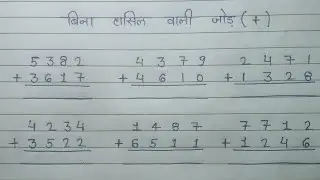 बिना हासिल वाली जोड़ (+)
5382 4379 2471
+3617 +4610 +1328
4234 1487 7712
+3522 +6511 +1246